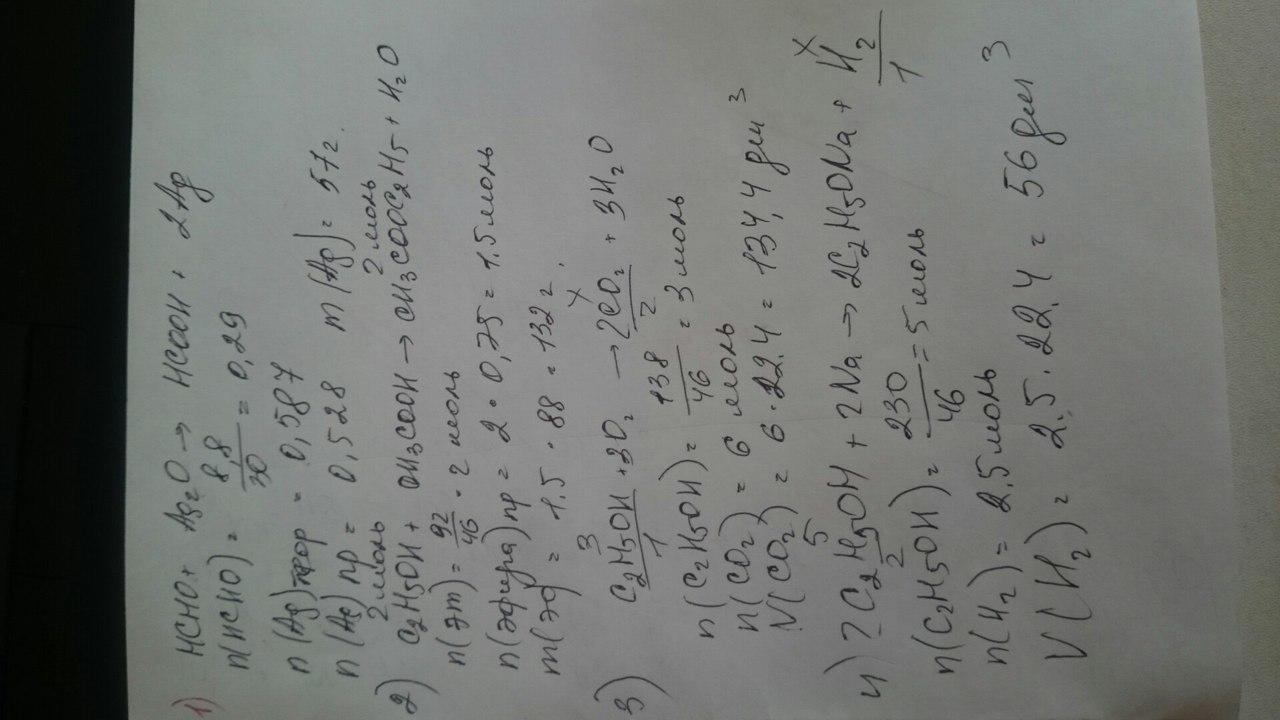 1) HCHO + Ag2O → HCOOH + 2Ag
n(HCHO) = 8,8/30 = 0,29
n(Ag)теор = 0,587
n(Ag)пр = 0,528 m(Ag) = 57г.
2моль 2моль
2) C2H5OH + CH3COOH → CH3COOC2H5 + H2O
n(эт) = 92/46 = 2 моль
n(эфира)пр = 2 · 0,75 = 1.5 моль
m(эф = 1.5 · 88 = 132 г.
3 X
3) C2H5OH + 3O2 → 2CO2 + 3H2O
1 2
n(C2H5OH) = 138/46 = 3 моль
n(CO2) = 6 моль
V(CO2) = 6 · 22.4 = 134,4 дм3
5 X
4) 2C2H5OH + 2Na → 2C2H5ONa + H2
2 1
n(C2H5OH) = 230/46 = 5 моль
n(H2) = 2.5 моль
V(H2) = 2.5 · 22.4 = 56 дм3